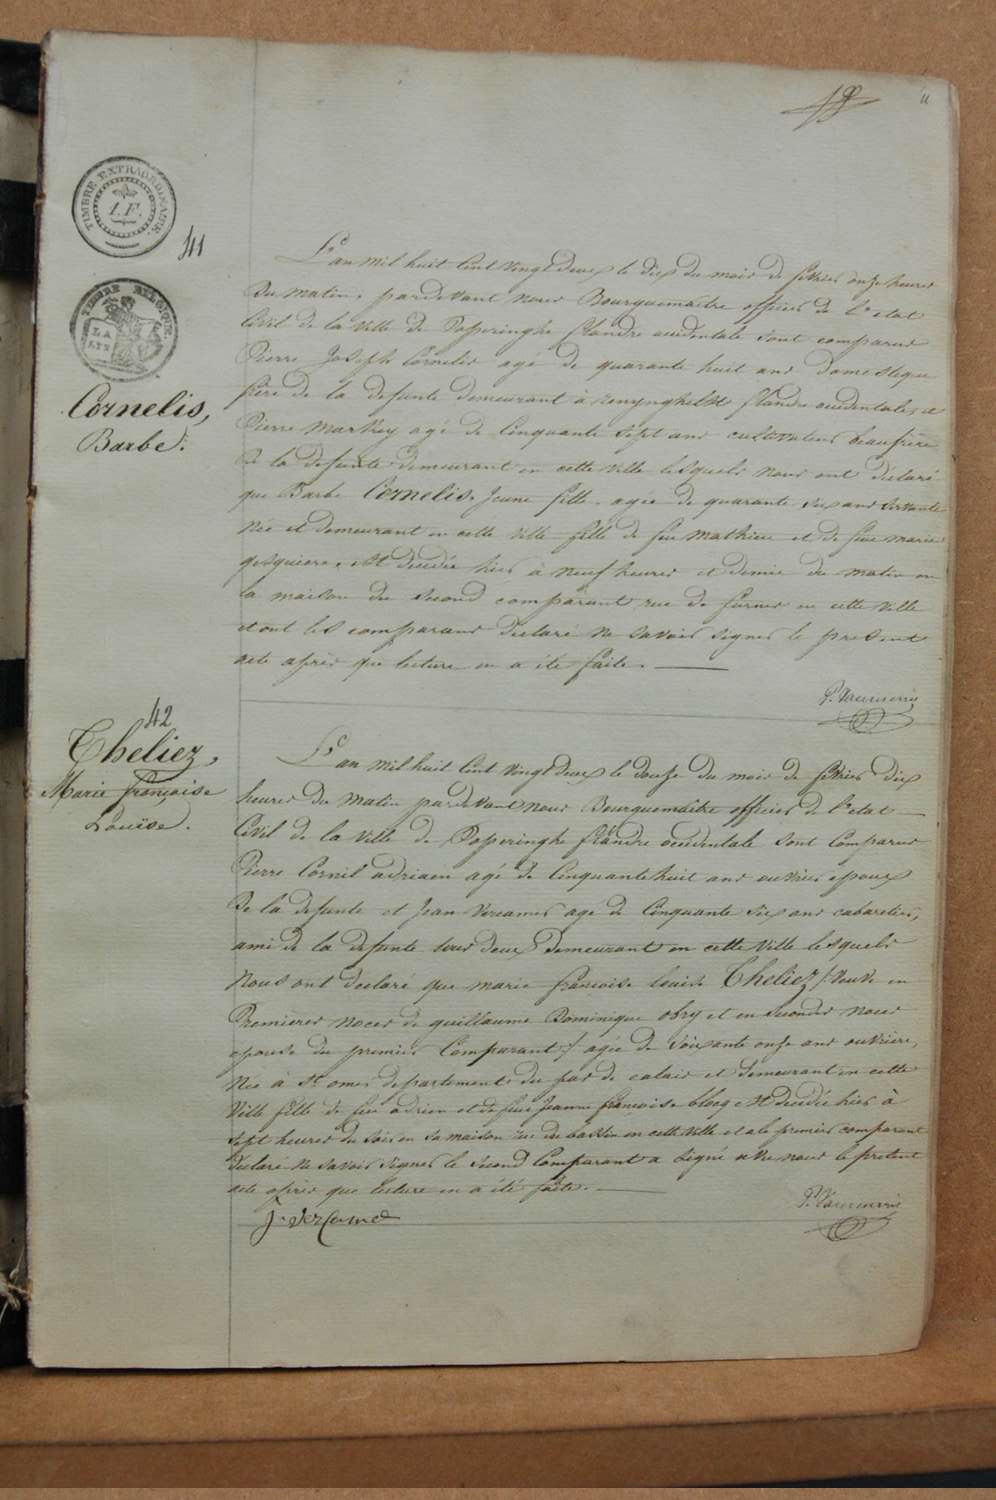 11
TIMBRE EXTRAORDINAIRE.
1. F.
41
TIMBRE BELGIQUE
Cornelis,
Barbe.
L'an mil huit Cent Vingt deux le dix du mois de fevrier onze heures
du matin, pardevant nous Bourguemaitre officier de l'etat
Civil de la Ville de Poperinghe flandre occidentale sont comparus
Pierre Joseph Cornelis agé de quarante huit ans domestique
frère de la defunte demeurant à renynghelst flandre occidentale, et
Pierre agé de Cinquante sept ans cultivateur beaufrère
de la defunte demeurant en cette ville lesquels nous ont déclaré
que Barbe Cornelis, Jeune fille, agée de quarante six ans servante
Née et demeurant en cette ville fille de feu mathieu et de feue marie
est decedée hier à neuf heures et demie du matin en
la maison du second comparant rue de furnes en cette Ville
et ont les comparans declaré ne savoir signer le present
acte après que lecture en a été faite.
P. Vanmerris
42
Theliez,
Marie françoise
Louise.
L'an mil huit Cent Vingt deux le douze du mois de fevrier dix
heures du matin pardevant nous Bourguemaitre officier de l'etat
Civil de la Ville de Poperinghe flandre occidentale sont Comparus
Pierre Cornil adriaen agé de Cinquante huit ans ouvrier epoux
de la defunte et Jean Vercamer agé de Cinquante six ans cabaretier,
ami de la defunte tous deux Demeurant en cette Ville lesquels
Nous ont declaré que marie francoise louise Theliez /: Veuve en
Premieres noces de guillaume Dominique obry et en secondes noces
epouse du premier Comparant :/ agée de Soixante onze ans ouvriere,
Née à St. omer departement du pas de calais et demeurant en cette
Ville fille de feu adrien et de feue Jeanne françoise bloeg est decedée hier à
sept heures du soir en sa maison rue du en cette Ville et a le premier comparant
Declaré ne savoir signer le second Comparant a signé avec nous le present
acte après que Lecture en a été faite.
J. Vercame
P. Vanmerris